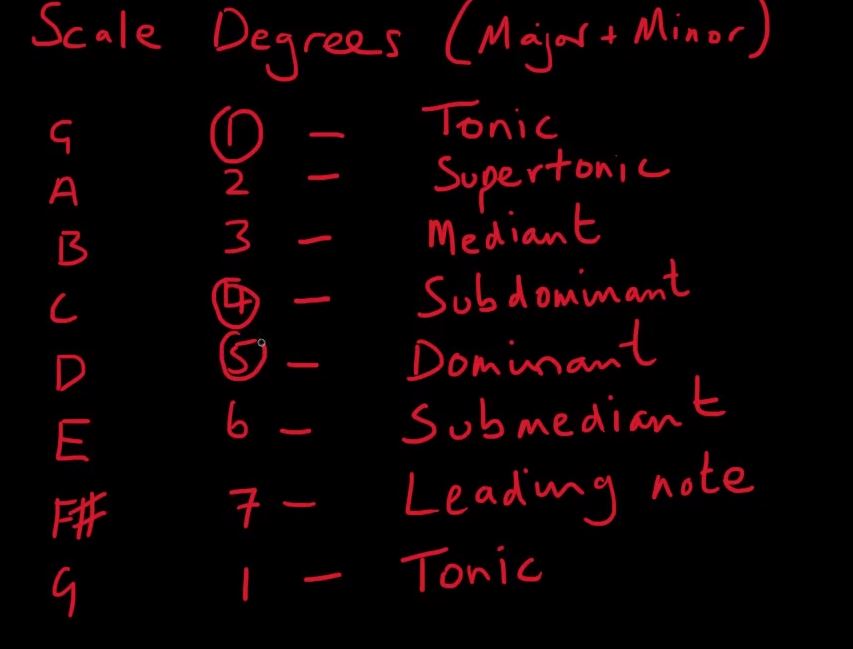 Scale Degrees (Major + Minor)
G 1 – Tonic
A 2 – Supertonic
B 3 – Mediant
C 4 – Subdominant
D 5 – Dominant
E 6 – Submediant
F# 7 – Leading note
G 1 – Tonic